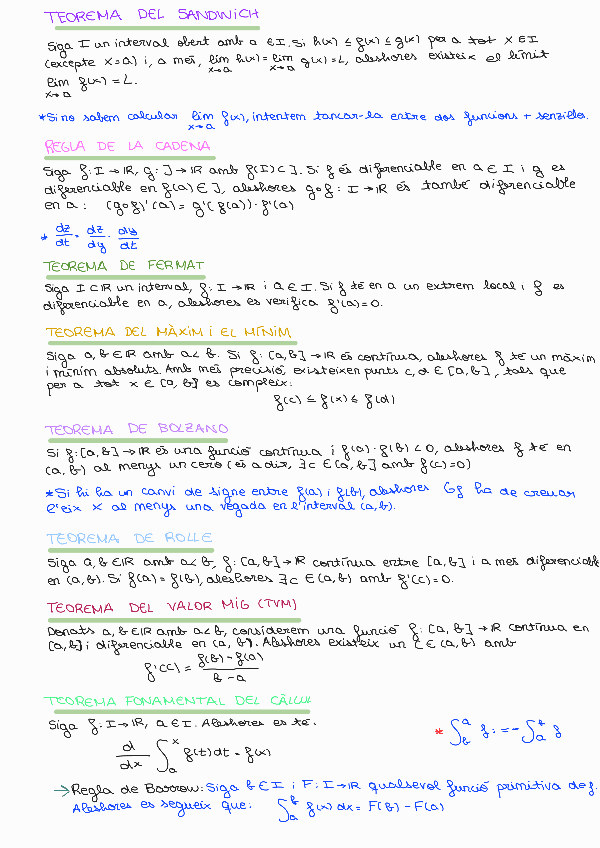 TEOREMA DEL SANDWICH
Siga I un interval obert amb a ∈ I. Si h(x) ≤ f(x) ≤ g(x) per a tot x ∈ I
(excepte x=a) i, a més, lim h(x) = lim g(x) = L, aleshores existeix el límit
x→a x→a
lim f(x) = L.
x→a
*Si no sabem calcular lim f(x), intentem tancar-la entre dos funcions + senzilles.
x→a
REGLA DE LA CADENA
Siga f: I → IR, g: J → IR amb f(I) ⊂ J. Si f és diferenciable en a ∈ I i g es
diferenciable en f(a) ∈ J, aleshores g∘f: I → IR és també diferenciable
en a: (g∘f)'(a) = g'(f(a))·f'(a)
* dz/dt = dz/dy · dy/dt
TEOREMA DE FERMAT
Siga I ⊂ IR un interval, f: I → IR i a ∈ I. Si f té en a un extrem local i f es
diferenciable en a, aleshores es verifica f'(a)=0.
TEOREMA DEL MÀXIM i EL MÍNIM
Siga a, b ∈ IR amb a<b. Si f: [a,b] → IR és contínua, aleshores f té un màxim
i mínim absoluts. Amb més precisió existeixen punts c, d ∈ [a,b], tals que
per a tot x ∈ [a,b] es compleix:
f(c) ≤ f(x) ≤ f(d)
TEOREMA DE BOLZANO
Si f:[a,b] → IR és una funció contínua i f(a)·f(b) < 0, aleshores f té en
(a,b) al menys un cero (és a dir, ∃c ∈ (a,b] amb f(c)=0)
*Si hi ha un canvi de signe entre f(a) i f(b), aleshores Gf ha de creuar
l'eix X al menys una vegada en l'interval (a,b).
TEOREMA DE ROLLE
Siga a, b ∈ IR amb a<b, f: [a,b] → IR contínua entre [a,b] i a més diferenciable
en (a,b). Si f(a) = f(b), aleshores ∃c ∈ (a,b) amb f'(c)=0.
TEOREMA DEL VALOR MIG (TVM)
Donats a, b ∈ IR amb a<b, considerem una funció f: [a,b] → IR contínua en
[a,b] i diferenciable en (a,b). Aleshores existeix un c ∈ (a,b) amb
f'(c) = f(b)-f(a) / b-a
TEOREMA FONAMENTAL DEL CÀLCUL
Siga f: I → IR, a ∈ I. Aleshores es té:
* ∫_b^a f := -∫_a^b f
d/dx ∫_a^x f(t)dt = f(x)
→ Regla de Barrow: Siga b ∈ I i F: I → IR qualsevol funció primitiva de f.
Aleshores es segueix que: ∫_a^b f(x) dx = F(b) - F(a)